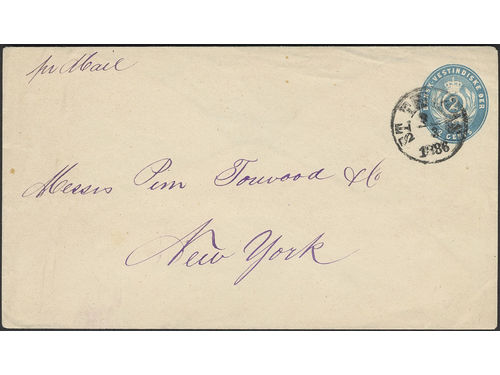 pr Mail
DANSK VESTINDISKE ØER
2
2 CENTS
ST. T
1886
Messrs Pim Forwood & Co
New York